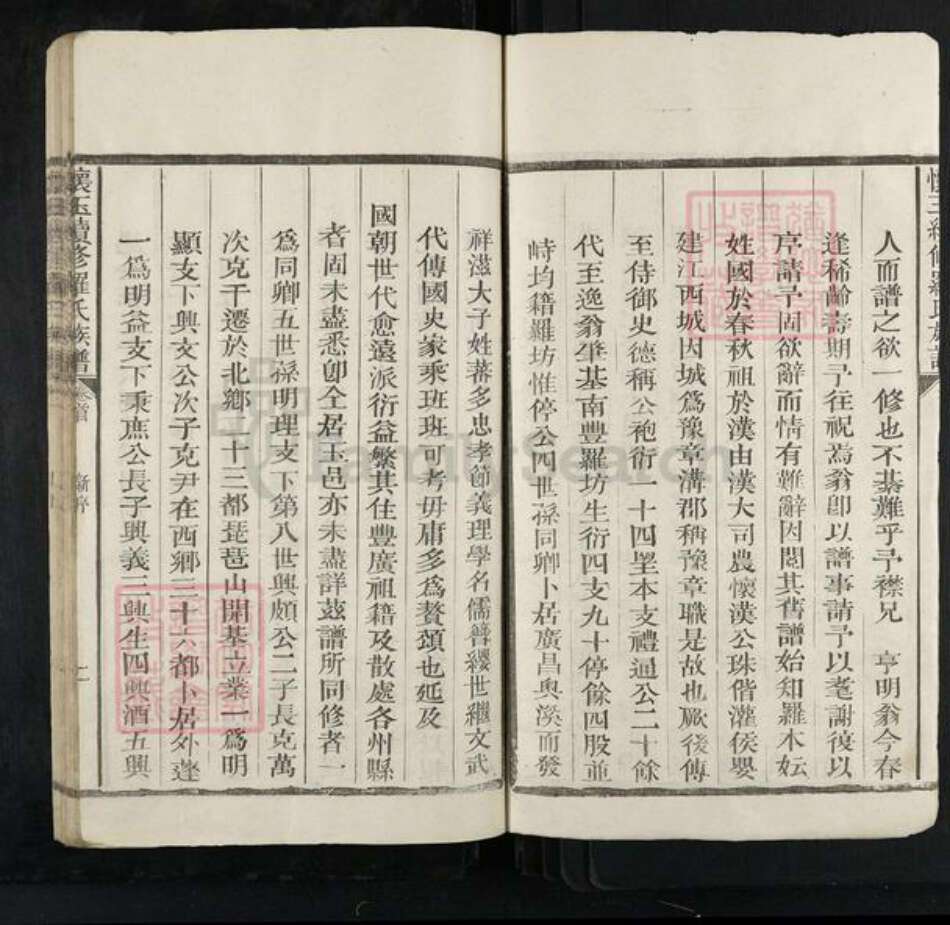 人而譜之欲一修也不綦難乎予襟兄 亨明翁今春
逢稀齡壽期予往祝為翁卽以譜事請予以耄謝復以
序請予固欲辭而情有難辭因閱其舊譜始知羅本妘
姓國於春秋祖於漢由漢大司農懷漢公珠偕灌侯嬰
建江西城因城為豫章溝郡稱豫章職是故也厥後傳
至侍御史德稱公袍衍一十四塋本支禮通公二十餘
代至逸翁肇基南豐羅坊生衍四支九十停餘四股並
時均籍羅坊惟停公四世孫同卿卜居廣昌奥溪而發
祥滋大子姓蕃多忠孝節義理學名儒簪纓世繼文武
代傳國史家乘班班可考毋庸多為贅頌也延及
國朝世代愈遠派衍益繁其住豐廣祖籍及散處各州縣
者固未盡悉卽仝居玉邑亦未盡詳茲譜所同修者一
為同卿五世孫明理支下第八世興頗公二子長克萬
次克千遷於北鄉二十三都琵琶山開基立業一為明
顯支下興文公次子克尹在西鄉三十六都卜居外蓬
一為明益支下秉庶公長子興義三興生四興酒五興
懷玉續修羅氏族譜 卷首